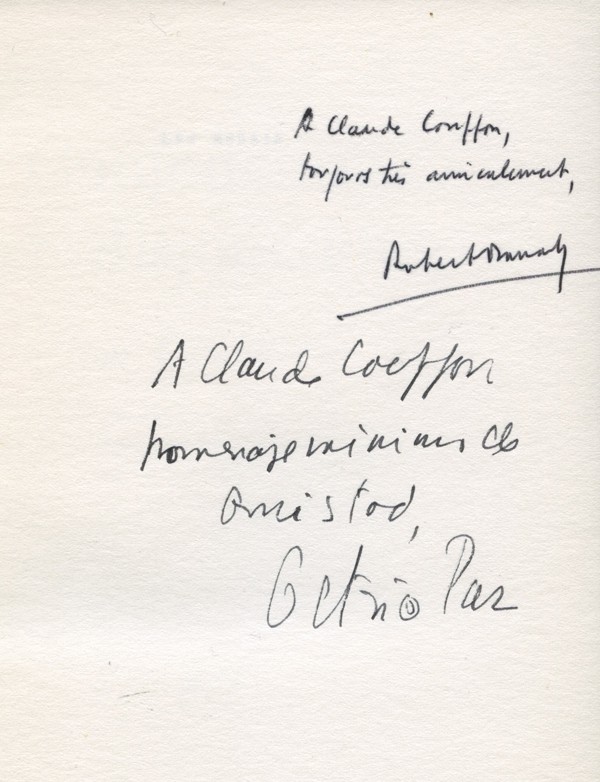 A Claude Couffon,
toujours très amicalement,
Robert Marrast
A Claude Coeffon
homenaje minimo de
amistad,
Octavio Paz